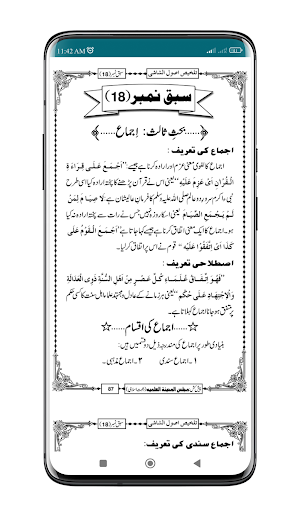 11:42 AM
تلخیص اصول الشاشی سبق نمبر (18)
سبق نمبر (18)
بحثِ ثالث: اِجماع
اجماع کی تعریف:
اجماع کا لغوی معنی عزم اور ارادہ کرنا ہے جیسے ’’اَجْمَعَ عَلٰی قِرَاءَةِ
الْقُرْاٰنِ اَیْ عَزَمَ عَلَیْهِ‘‘ یعنی اس نے قرآن پڑھنے کا پختہ ارادہ کیا اسی طرح
نبی اکرم صلی اللہ علیہ وسلم کا فرمان عالیشان ہے لَا صِیَامَ لِمَنْ
لَمْ یَجْمَعِ الصِّیَامَ یعنی اس کا روزہ نہیں جس نے رات سے پختہ ارادہ نہ کیا
ہو۔ اجماع کا ایک معنی اتفاق کرنا ہے جیسے کہا جاتا ہے ’’اَجْمَعَ الْقَوْمُ عَلٰی
کَذَا اَیْ اِتَّفَقُوْا عَلَیْهِ‘‘ قوم نے اس پر اجماع کرلیا۔
اصطلاحی تعریف:
’’فَهُوَ اِتِّفَاقُ عُلَمَاءِ کُلِّ عَصْرٍ مِنْ اَهْلِ السُّنَّةِ ذَوِی الْعَدَالَةِ
وَالْاِجْتِهَادِ عَلٰی حُکْمٍ‘‘ یعنی ہر زمانے کے عادل و مجتہد علماء اہل سنت کا کسی حکم
پر متفق ہوجانا اجماع کہلاتا ہے۔
اجماع کی اقسام
بنیادی طور پر اجماع کی مندرجہ ذیل دو قسمیں ہیں:
۱۔ اجماع سندی ۲۔ اجماع مذہبی۔
مجلس المدینۃ العلمیۃ 87
تلخیص اصول الشاشی سبق نمبر (18)
اجماع سندی کی تعریف: